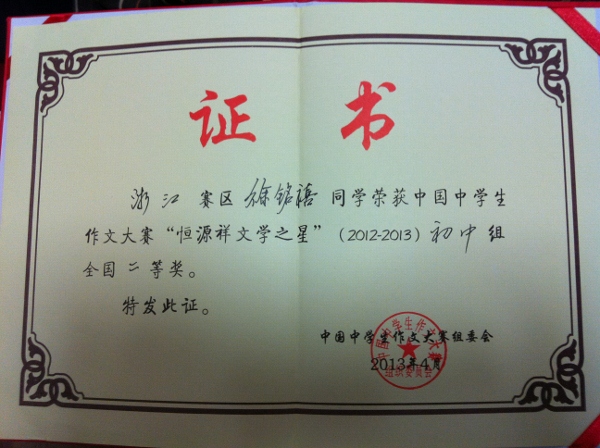 证书
浙江赛区徐铭禧同学荣获中国中学生
作文大赛“恒源祥文学之星”(2012-2013)初中组
全国二等奖。
特发此证。
中国中学生作文大赛组委会
2013年4月
中国中学生作文大赛
组织委员会